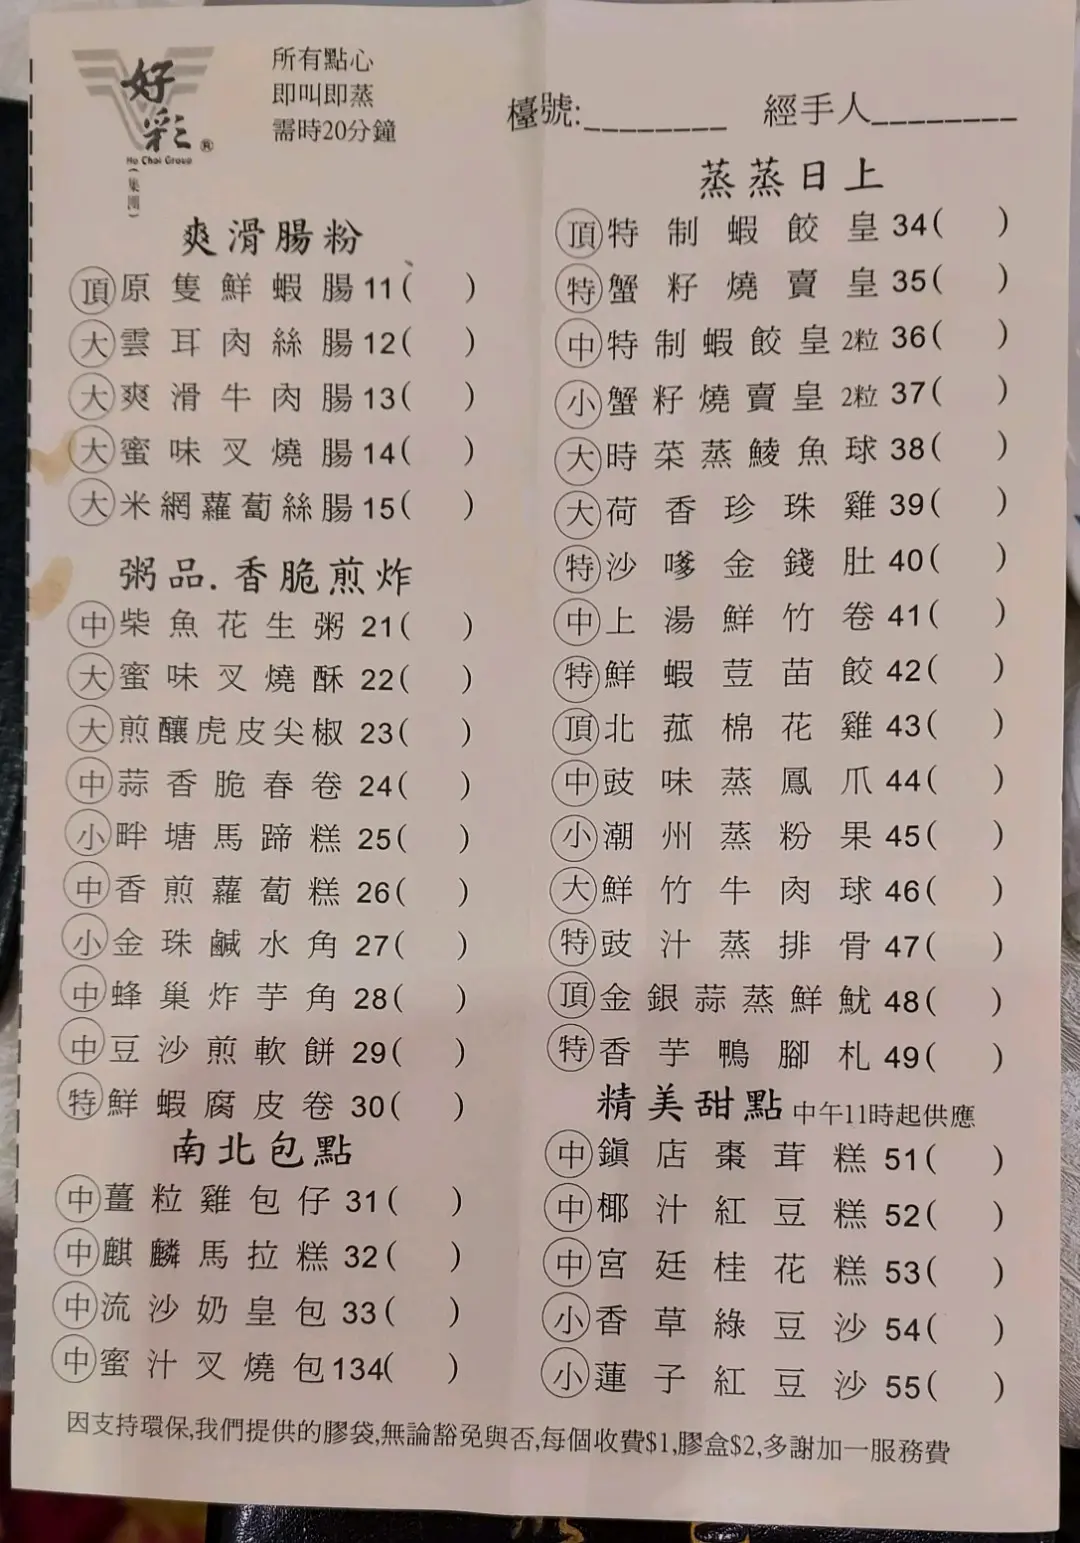 好彩®
Ho Choi Group
(集團)
所有點心
即叫即蒸
需時20分鐘
檯號:________ 經手人________
爽滑腸粉
頂 原隻鮮蝦腸 11( )
大 雲耳肉絲腸 12( )
大 爽滑牛肉腸 13( )
大 蜜味叉燒腸 14( )
大 米網蘿蔔絲腸 15( )
粥品.香脆煎炸
中 柴魚花生粥 21( )
大 蜜味叉燒酥 22( )
大 煎釀虎皮尖椒 23( )
中 蒜香脆春卷 24( )
小 畔塘馬蹄糕 25( )
中 香煎蘿蔔糕 26( )
小 金珠鹹水角 27( )
中 蜂巢炸芋角 28( )
中 豆沙煎軟餅 29( )
特 鮮蝦腐皮卷 30( )
南北包點
中 薑粒雞包仔 31( )
中 麒麟馬拉糕 32( )
中 流沙奶皇包 33( )
中 蜜汁叉燒包 134( )
蒸蒸日上
頂 特制蝦餃皇 34( )
特 蟹籽燒賣皇 35( )
中 特制蝦餃皇 2粒 36( )
小 蟹籽燒賣皇 2粒 37( )
大 時菜蒸鯪魚球 38( )
大 荷香珍珠雞 39( )
特 沙嗲金錢肚 40( )
中 上湯鮮竹卷 41( )
特 鮮蝦荳苗餃 42( )
頂 北菰棉花雞 43( )
中 豉味蒸鳳爪 44( )
小 潮州蒸粉果 45( )
大 鮮竹牛肉球 46( )
特 豉汁蒸排骨 47( )
頂 金銀蒜蒸鮮魷 48( )
特 香芋鴨腳札 49( )
精美甜點 中午11時起供應
中 鎮店棗茸糕 51( )
中 椰汁紅豆糕 52( )
中 宮廷桂花糕 53( )
小 香草綠豆沙 54( )
小 蓮子紅豆沙 55( )
因支持環保,我們提供的膠袋,無論豁免與否,每個收費$1,膠盒$2,多謝加一服務費